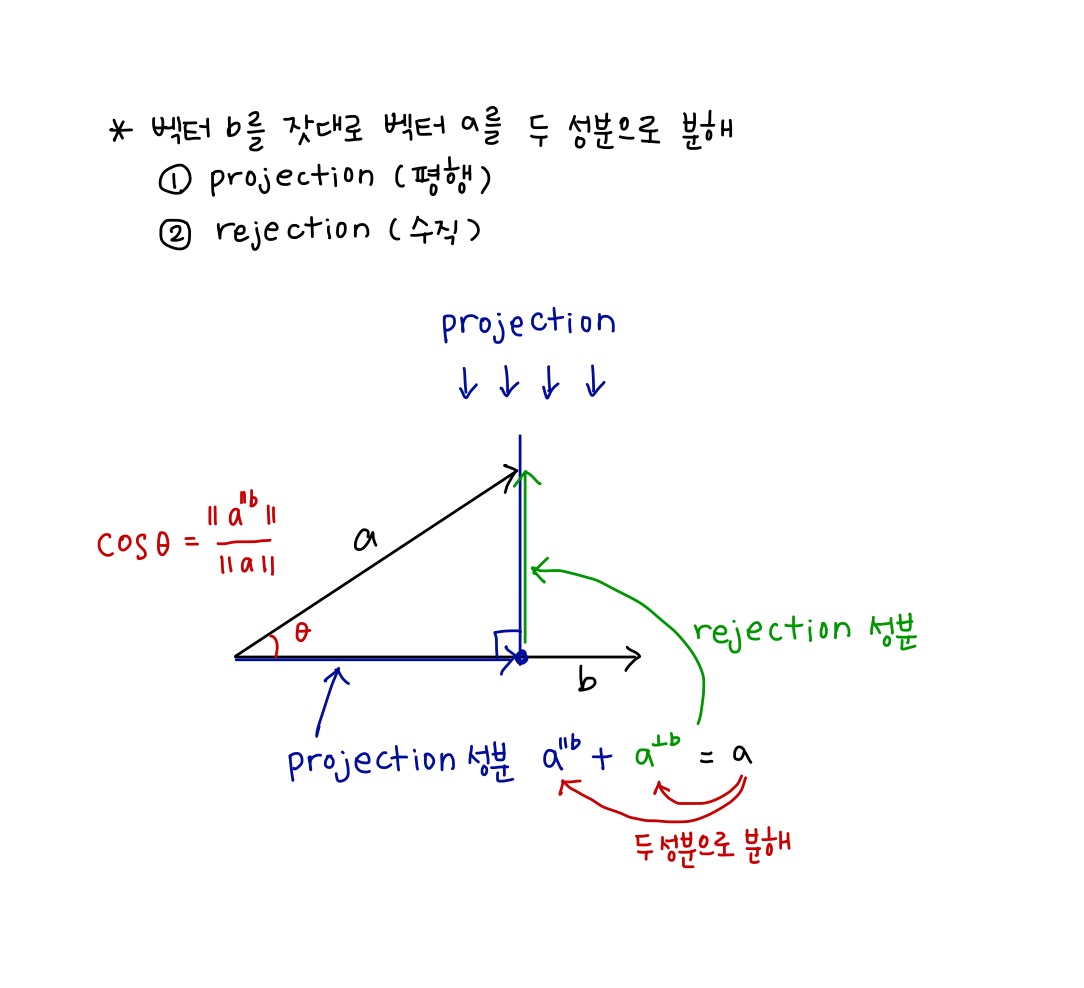 * 벡터 b를 잣대로 벡터 a를 두 성분으로 분해
① projection (평행)
② rejection (수직)
projection
↓ ↓ ↓ ↓
cosθ = ‖a^{∥b}‖ / ‖a‖
a
θ
b
rejection 성분
projection 성분 a^{∥b} + a^{⊥b} = a
두 성분으로 분해